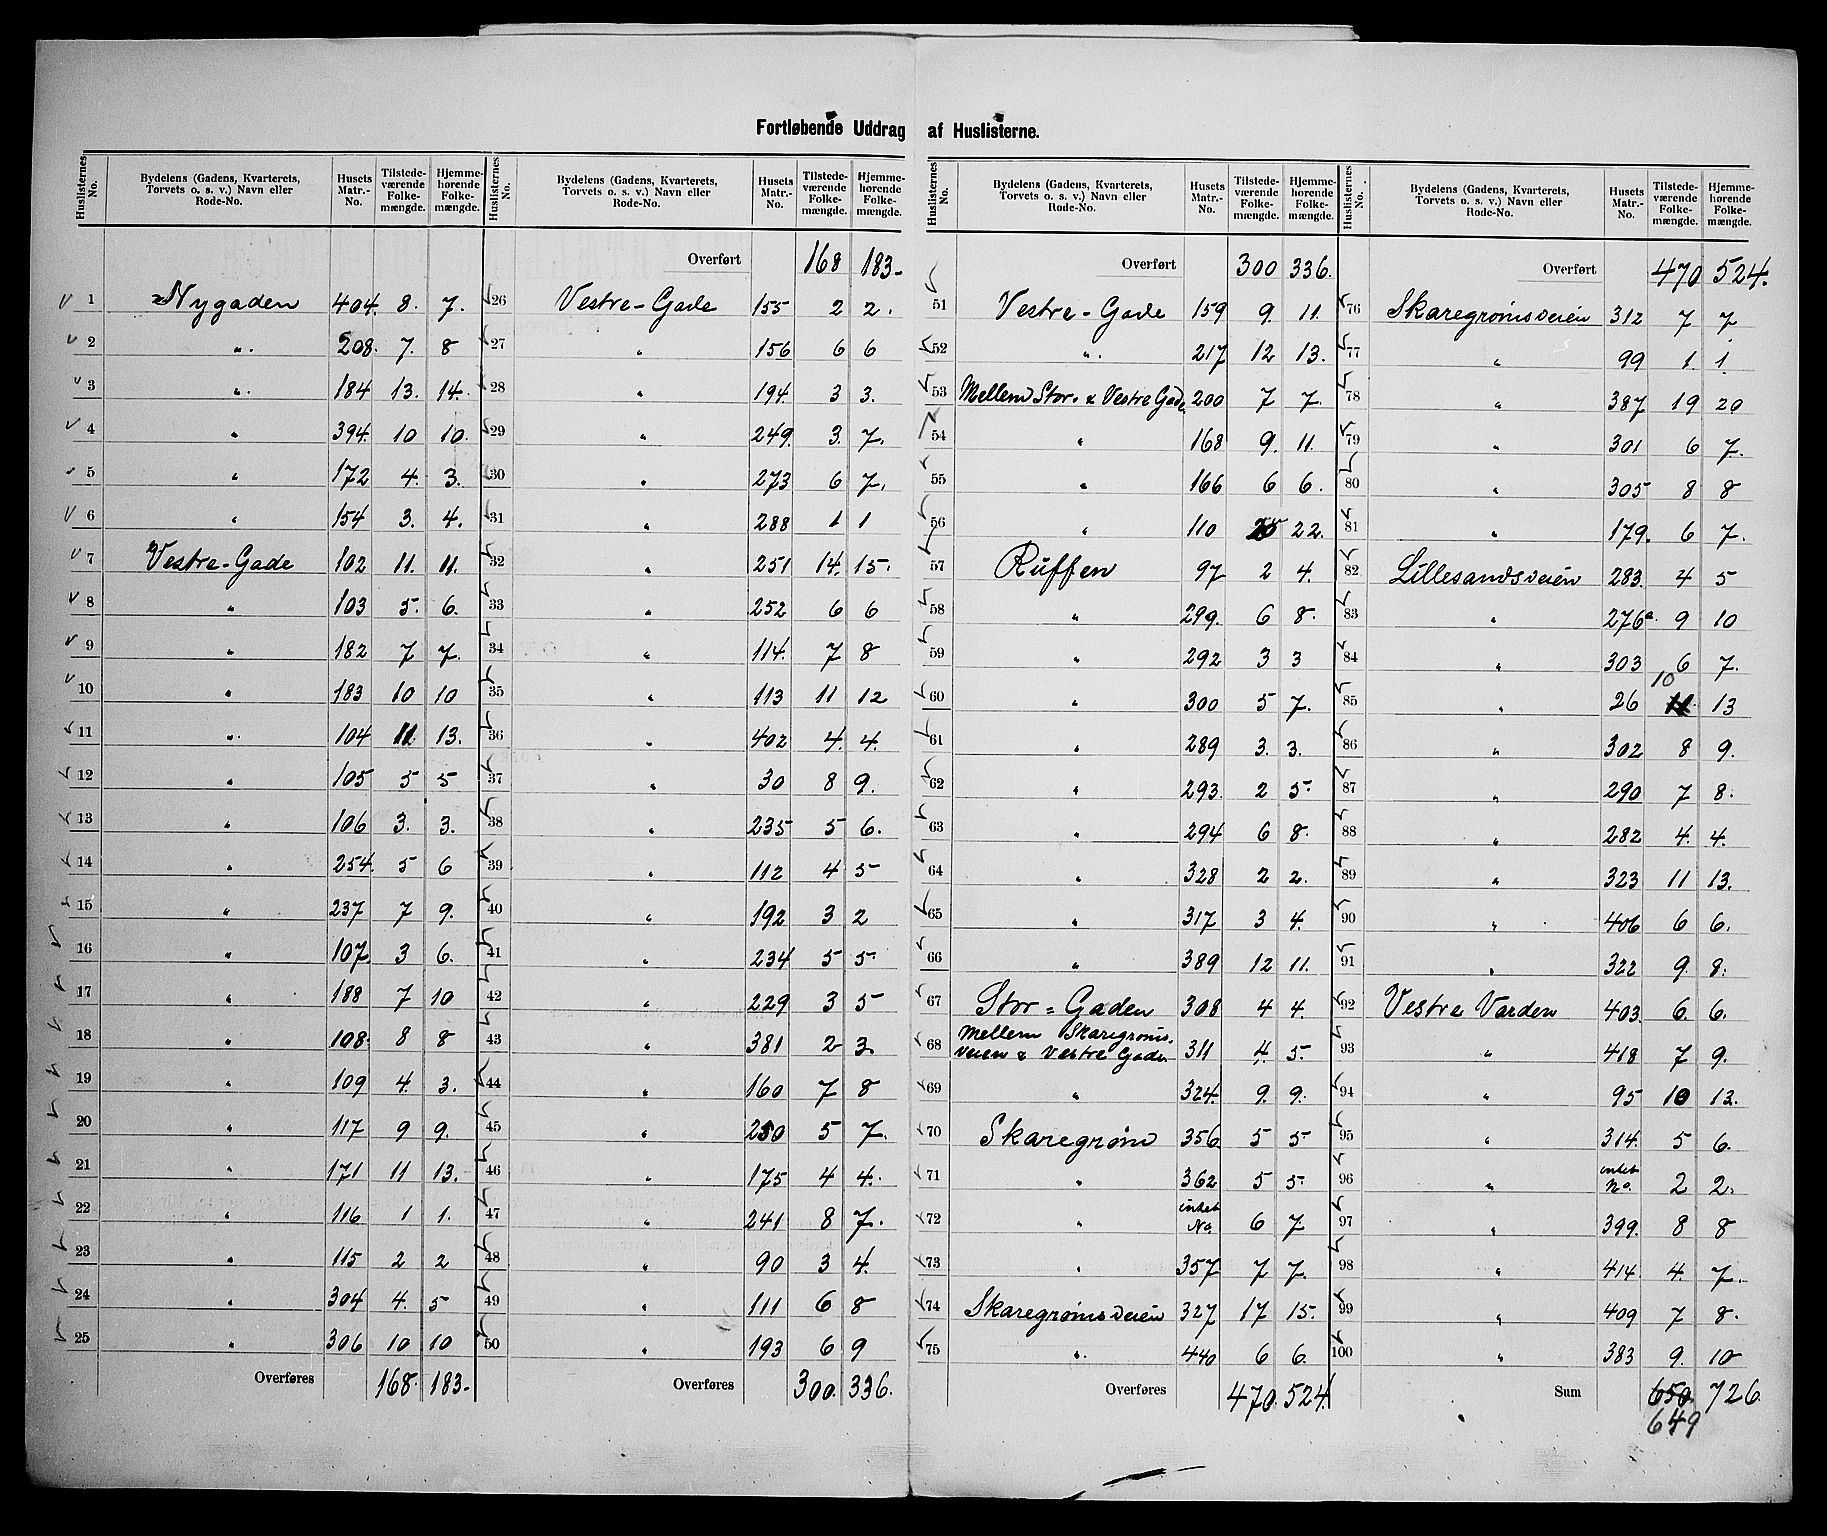 Fortløbende Uddrag af Huslisterne.
Huslisternes No. | Bydelens (Gadens, Kvarterets, Torvets o. s. v.) Navn eller Rode-No. | Husets Matr.-No. | Tilstedeværende Folkemængde. | Hjemmehørende Folkemængde.
1 Nygaden 404. 8. 7.
2 " 208. 7. 8
3 " 184 13. 14.
4 " 394. 10 10.
5 " 172 4. 3.
6 " 154 3. 4.
7 Vestre-Gade 102 11. 11.
8 " 103 5. 6.
9 " 182 7 7.
10 " 183 10 10
11 " 104 11 13.
12 " 105 5 5
13 " 106 3. 3.
14 " 254. 5 6
15 " 237 7 9.
16 " 107. 3 6.
17 " 188 7 10
18 " 108. 8 8
19 " 109 4. 3.
20 " 117 9 9.
21 " 171 11 13.
22 " 116 1 1.
23 " 115 2 2
24 " 304 4. 5
25 " 306 10 10
Overføres 168. 183.
Huslisternes No. | Bydelens (Gadens, Kvarterets, Torvets o. s. v.) Navn eller Rode-No. | Husets Matr.-No. | Tilstedeværende Folkemængde. | Hjemmehørende Folkemængde.
Overført 168 183.
26 Vestre-Gade 155 2 2.
27 " 156 6 6
28 " 194. 3 3.
29 " 249. 3. 7.
30 " 273 6 7.
31 " 288 1 1
32 " 251 14. 15.
33 " 252 6 6
34 " 114. 7 8
35 " 113 11 12
36 " 402 4. 4.
37 " 30 8 9.
38 " 235 5 6.
39 " 112 4 5
40 " 192 3 2
41 " 234 5 5
42 " 229 3 5
43 " 381 2 3
44 " 160 7 8
45 " 250 5 7.
46 " 175 4 4.
47 " 241 8 7.
48 " 90 3 4.
49 " 111 6 8
50 " 193 6 9
Overføres 300. 336.
Huslisternes No. | Bydelens (Gadens, Kvarterets, Torvets o. s. v.) Navn eller Rode-No. | Husets Matr.-No. | Tilstedeværende Folkemængde. | Hjemmehørende Folkemængde.
Overført 300 336.
51 Vestre-Gade 159 9. 11.
52 " 217 12 13.
53 Mellem Stor- & Vestre Gade 200 7 7.
54 " 168 9. 11.
55 " 166 6 6.
56 " 110 25 22.
57 Rüffen 97 2 4.
58 " 299. 6 8.
59 " 292 3 3
60 " 300 5 7.
61 " 289 3. 3.
62 " 293. 2 5.
63 " 294 6 8.
64 " 328 2 2.
65 " 317 3 4.
66 " 389 12 11.
67 Stor=Gaden 308 4 4.
68 Mellem Skaregrøms-
veien & Vestre Gade 311 4. 5.
69 " 324. 9. 9.
70 Skaregrøm 356 5 5
71 " 362 5 5
72 " intet No 6 7
73 " 357 7 7.
74 Skaregrømsveien 327 17 15.
75 " 440 6 6.
Overføres 470. 524.
Huslisternes No. | Bydelens (Gadens, Kvarterets, Torvets o. s. v.) Navn eller Rode-No. | Husets Matr.-No. | Tilstedeværende Folkemængde. | Hjemmehørende Folkemængde.
Overført 470 524.
76 Skaregrømsveien 312 7 7
77 " 99 1. 1.
78 " 387 19 20
79 " 301 6 7.
80 " 305 8 8
81 " 179. 6 7.
82 Lillesandsveien 283. 4 5
83 " 276a. 9 10
84 " 303 6 7.
85 " 26 11 10 13
86 " 302 8 9.
87 " 290 7 8.
88 " 282 4. 4.
89 " 323 11 13.
90 " 406 6 6.
91 " 322 9. 8.
92 Vestre Varden 403. 6. 6.
93 " 418 7 9.
94 " 95 10 13.
95 " 314. 5 6.
96 " intet No. 2 2.
97 " 399. 8 8
98 " 414 4. 7.
99 " 409 7 8.
100 " 383 9. 10
Sum 650. 726.
649